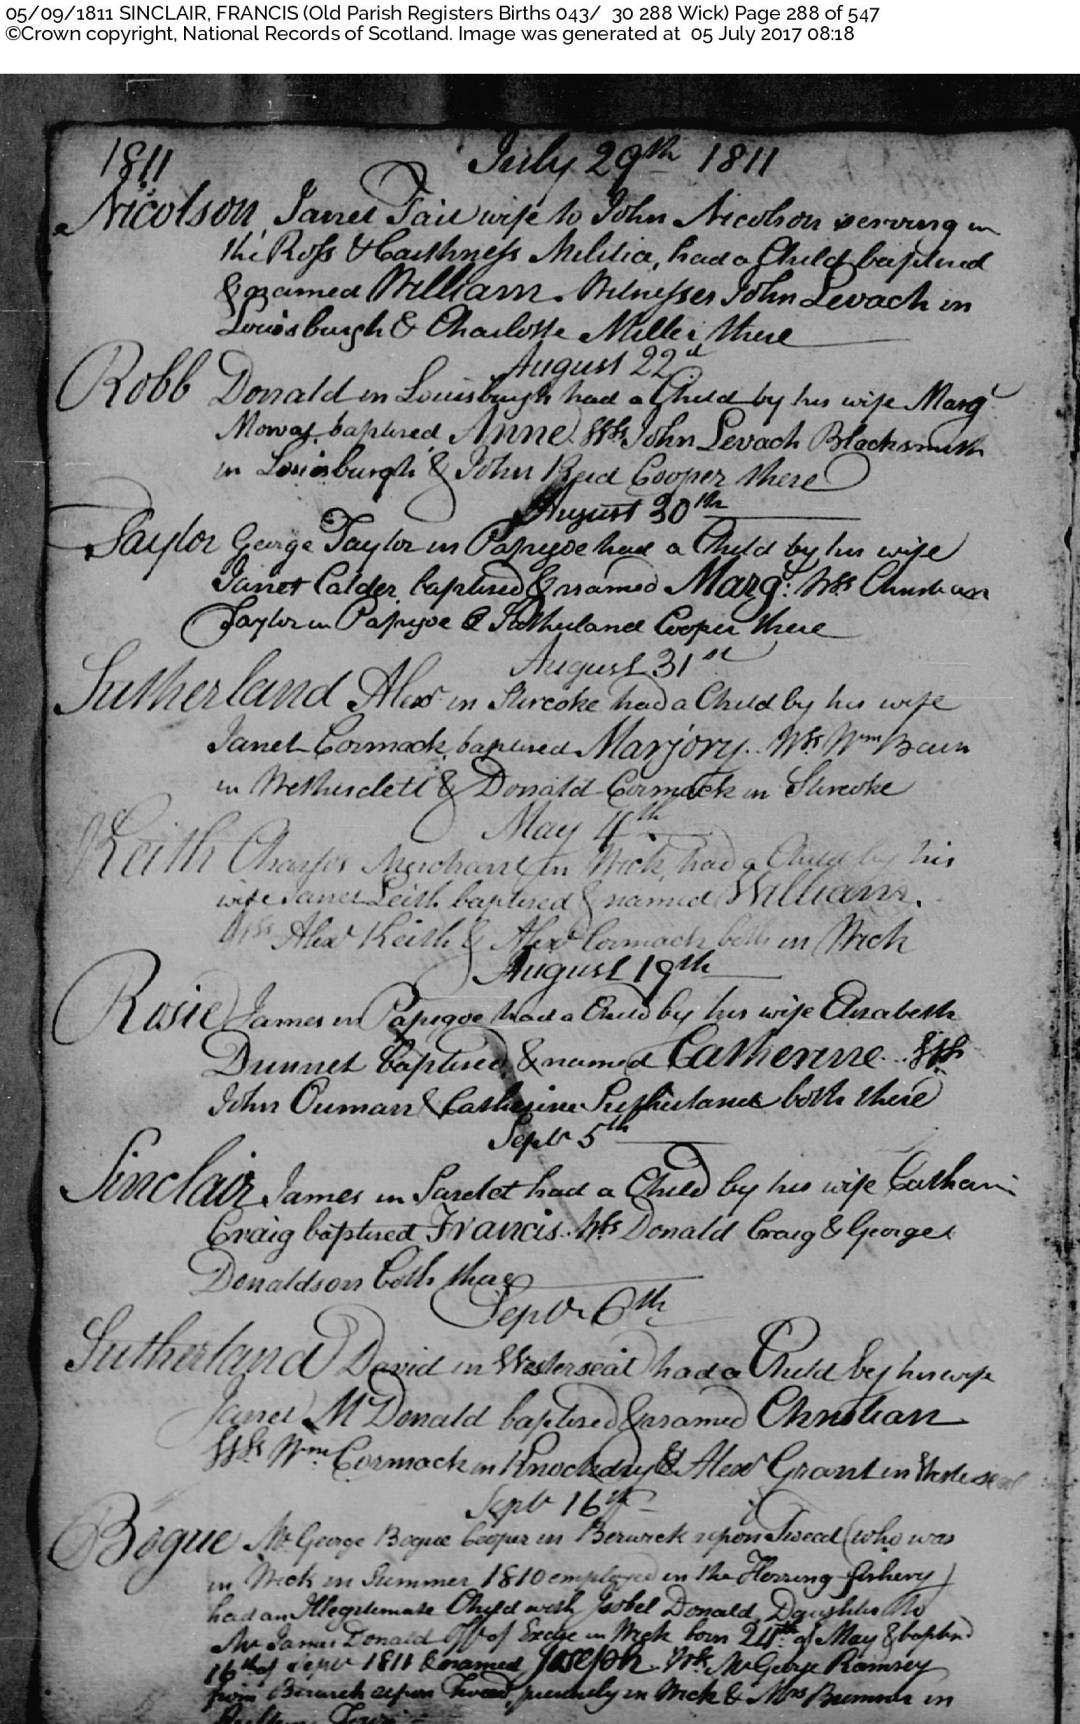 05/09/1811 SINCLAIR, FRANCIS (Old Parish Registers Births 043/ 30 288 Wick) Page 288 of 547
©Crown copyright, National Records of Scotland. Image was generated at 05 July 2017 08:18
1811 July 29th 1811
Nicolson, Janet Tait wife to John Nicolson serving in
the Ross & Caithness Militia, had a Child baptized
& named William. Witnesses John Levach in
Louisburgh & Charlotte Miller there
August 22d
Robb Donald in Louisburgh had a Child by his wife Margt
Mowat baptized Anne. Wss John Levach Blacksmith
in Louisburgh & John Reid Cooper there
August 30th
Taylor George Taylor in Papigoe had a Child by his wife
Janet Calder, baptized & named Margt: Wss Christian
Taylor in Papigoe & Sutherland Cooper there
August 31st
Sutherland Alexr in Stircoke had a Child by his wife
Janet Cormack, baptized Marjory. Wss Wm Bain
in & Donald Cormack in Stircoke
May 4th
Keith Charles Merchant in Wick, had a Child by his
wife Janet Leith baptized & named William.
Wss Alexr Keith & Alexr Cormack both in Wick
August 19th
Rosie James in Papigoe had a Child by his wife Elizabeth
Dunnet baptized & named Catherine. Wss
John Ouman & Catherine Sutherland both there
Septr 5th
Sinclair James in Sarclet had a Child by his wife Catharin
Craig baptized Francis. Wss Donald Craig & George
Donaldson both there
Septr 6th
Sutherland David in Westerseat had a Child by his wife
Janet McDonald baptized & named Christian
Wss Wm Cormack in Knockdry & Alexr Grant in Westerseat
Septr 16th
Bogue Mr George Bogue Cooper in Berwick upon Tweed (who was
in Wick in Summer 1810 employed in the Herring fishery)
had an Illegitimate Child with Isobel Donald, Daughter to
Mr James Donald Offr of Excise in Wick born 24th of May & baptized
16th of Septr 1811 & named Joseph. Wss Mr George Ramsey
from Berwick upon Tweed, presently in Wick & Mrs Bremner in